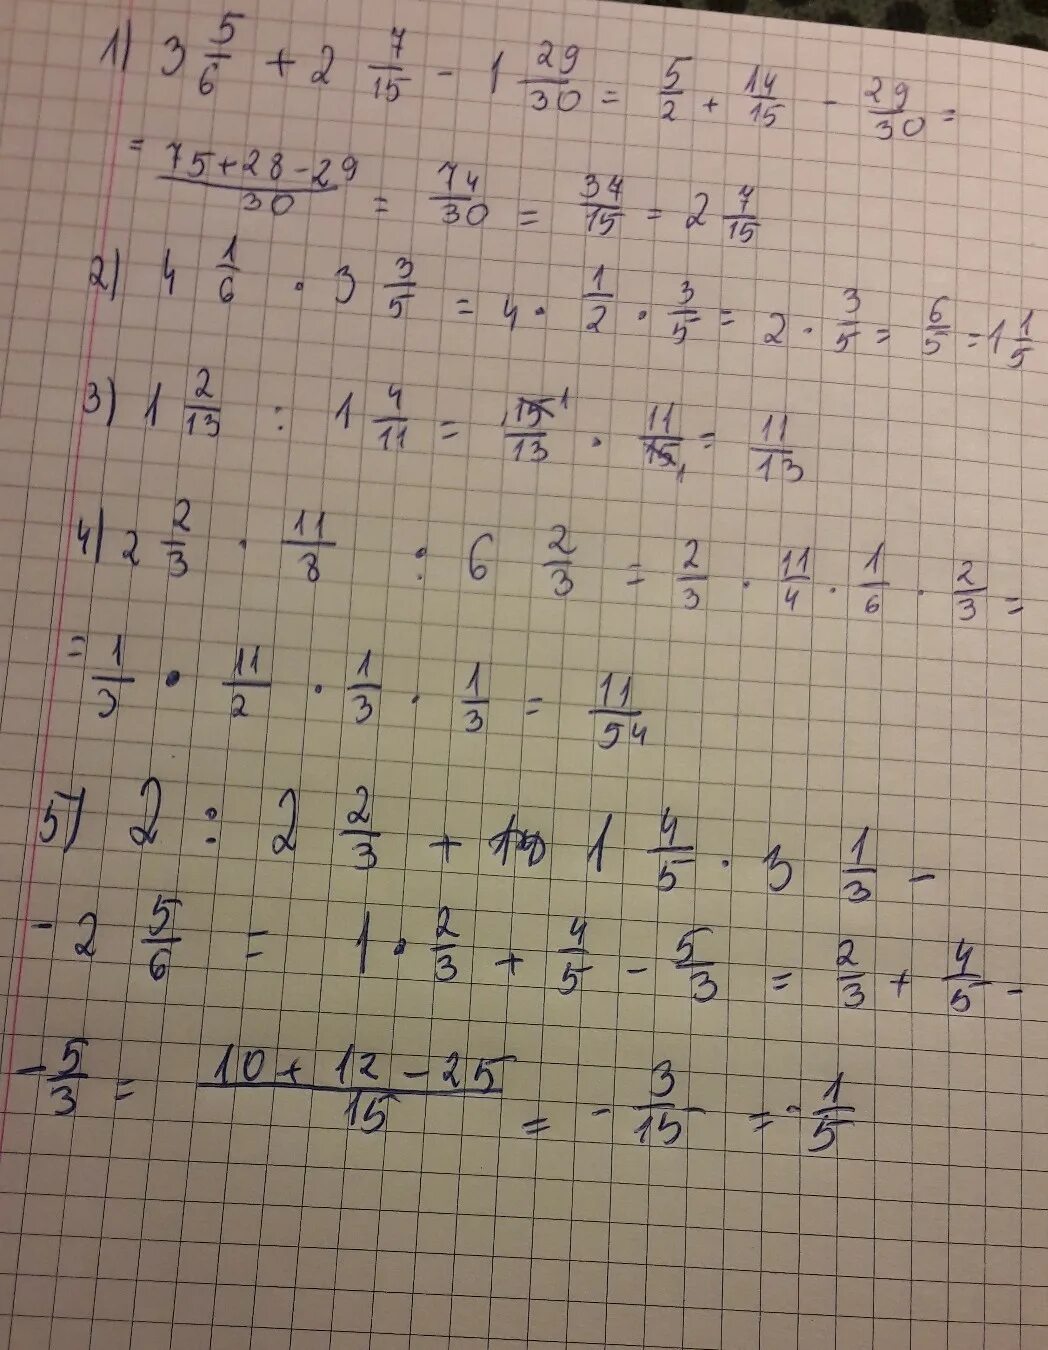 1) 3 5/6 + 2 7/15 - 1 29/30 = 5/2 + 14/15 - 29/30 =
= (75+28-29)/30 = 74/30 = 37/15 = 2 7/15
2) 4 1/6 · 3 3/5 = 4 · 1/2 · 3/5 = 2 · 3/5 = 6/5 = 1 1/5
3) 1 2/13 : 1 4/11 = 15/13 · 11/15 = 11/13
4) 2 2/3 · 11/8 : 6 2/3 = 2/3 · 11/4 · 1/6 · 2/3 =
= 1/3 · 11/2 · 1/3 · 1/3 = 11/54
5) 2 : 2 2/3 + 1 4/5 · 3 1/3 -
- 2 5/6 = 1 · 2/3 + 4/5 - 5/3 = 2/3 + 4/5 -
- 5/3 = (10+12-25)/15 = - 3/15 = - 1/5